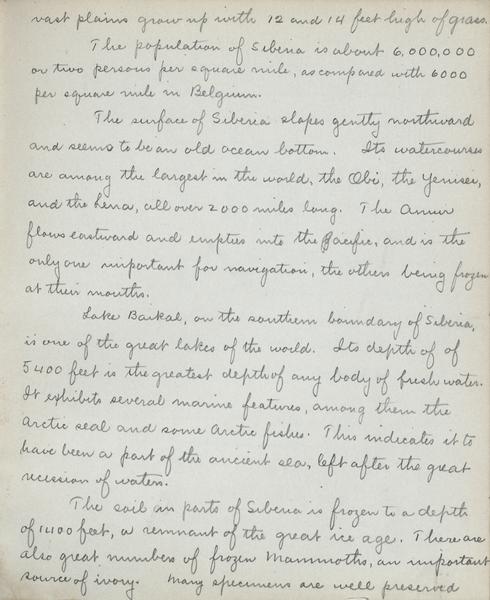 vast plains grow up with 12 and 14 feet high of grass.
The population of Siberia is about 6,000,000
or two persons per square mile, as compared with 6000
per square mile in Belgium.
The surface of Siberia slopes gently northward
and seems to be an old ocean bottom. Its watercourses
are among the largest in the world, the Obi, the Yenisei,
and the Lena, all over 2000 miles long. The Amur
flows eastward and empties into the Pacific, and is the
only one important for navigation, the others being frozen
at their mouths.
Lake Baikal, on the southern boundary of Siberia,
is one of the great lakes of the world. Its depth of of
5400 feet is the greatest depth of any body of fresh water.
It exhibits several marine features, among them the
Arctic seal and some Arctic fishes. This indicates it to
have been a part of the ancient sea, left after the great
recission of waters.
The soil in parts of Siberia is frozen to a depth
of 1400 feet, a remnant of the great ice age. There are
also great numbers of frozen Mammoths, an important
source of ivory. Many specimens are well preserved